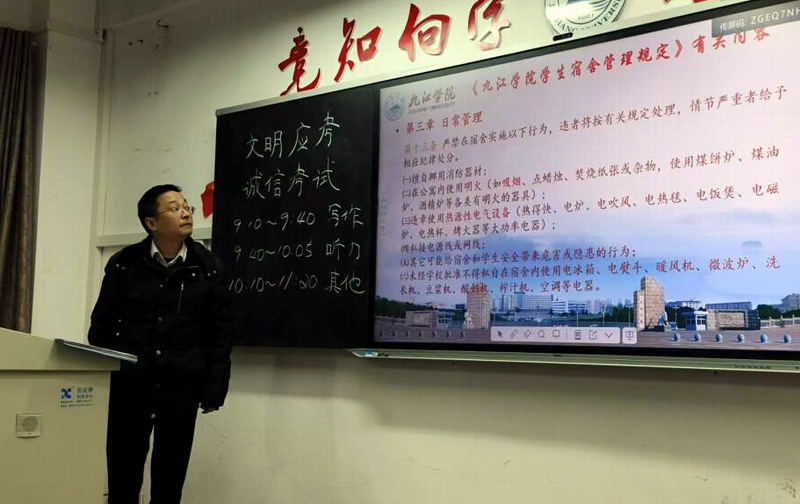 竟知向学
传屏码: ZGEQ7NH
九江学院
《九江学院学生宿舍管理规定》有关内容
• 第三章 日常管理
第十三条 严禁在宿舍实施以下行为，违者将按有关规定处理，情节严重者给予
相应纪律处分。
㈠擅自挪用消防器材；
㈡在公寓内使用明火（如吸烟、点蜡烛、焚烧纸张或杂物，使用煤饼炉、煤油
炉、酒精炉等各类有明火的器具）；
㈢违章使用热源性电气设备（热得快、电炉、电吹风、电热毯、电饭煲、电磁
炉、电热杯、烤火器等大功率电器）；
㈣私接电源线或网线；
㈤其它可能给宿舍和学生安全带来危害或隐患的行为；
㈥未经学校批准不得私自在宿舍内使用电冰箱、电熨斗、暖风机、微波炉、洗
衣机、豆浆机、酸奶机、榨汁机、空调等电器。
文明应考
诚信考试
9:10~9:40 写作
9:40~10:05 听力
10:10~11:20 其他